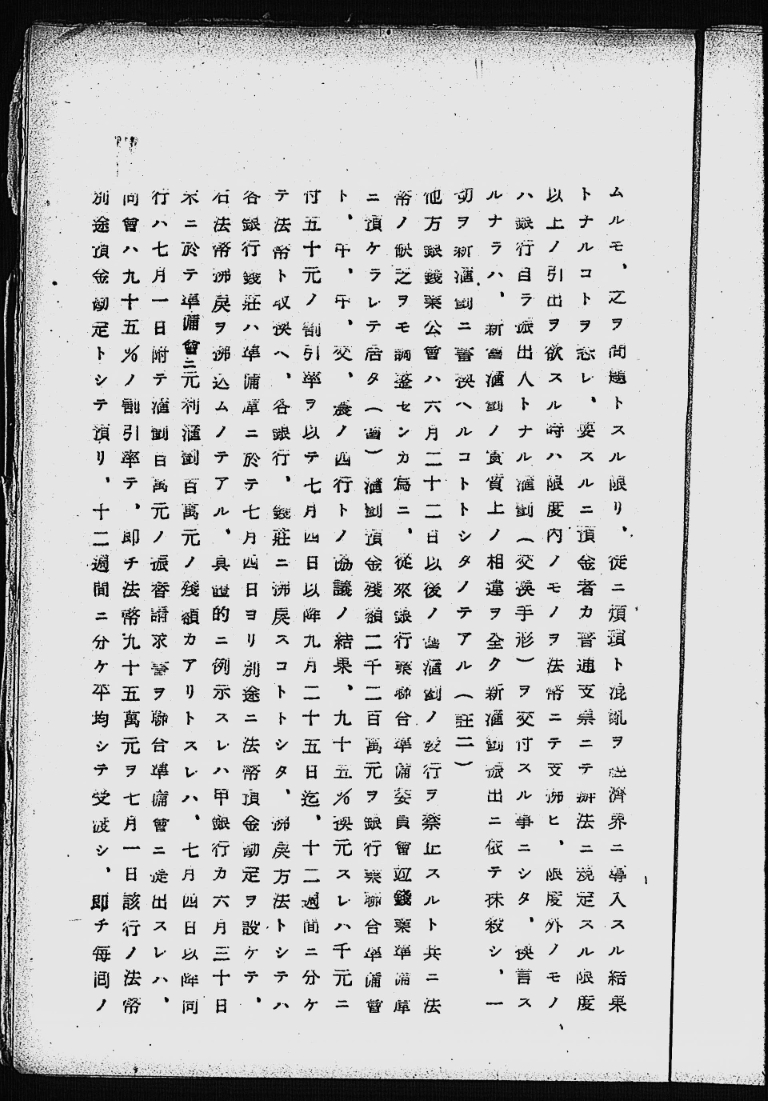 ムルモ、之ヲ問題トスル限リ、従ニ煩瑣ト混乱ヲ経済界ニ導入スル結果
トナルコトヲ恐レ、要スルニ預金者カ普通支票ニテ辦法ニ規定スル限度
以上ノ引出ヲ欲スル時ハ限度内ノモノヲ法幣ニテ支拂ヒ、限度外ノモノ
ハ銀行自ラ振出人トナル滙劃(交換手形)ヲ交付スル事ニシタ、換言ス
ルナラハ、新舊滙劃ノ實質上ノ相違ヲ全ク新滙劃振出ニ依テ抹殺シ、一
切ヲ新滙劃ニ書換ヘルコトトシタノテアル(註二)
他方銀錢業公會ハ六月二十二日以後ノ舊滙劃ノ發行ヲ禁止スルト共ニ法
幣ノ缺乏ヲモ調整センカ為ニ、從來銀行業聯合準備委員會並錢業準備庫
ニ預ケラレテ居タ(舊)滙劃預金残額二千二百萬元ヲ銀行業聯合準備會
ト、中、中、交、農ノ四行トノ協議ノ結果、九十五%換元スレハ千元ニ
付五十元ノ割引率ヲ以テ七月四日以降九月二十五日迄、十二週間ニ分ケ
テ法幣ト収換ヘ、各銀行、錢莊ニ拂戻スコトトシタ、拂戻方法トシテハ
各銀行錢莊ハ準備庫ニ於テ七月四日ヨリ別途ニ法幣預金勘定ヲ設ケテ、
右法幣拂戻ヲ拂込ムノテアル、具體的ニ例示スレハ甲銀行カ六月三十日
末ニ於テ準備會ニ元利滙劃百萬元ノ残額カアリトスレハ、七月四日以降同
行ハ七月一日附テ滙劃百萬元ノ振替請求書ヲ聯合準備會ニ提出スレハ、
同會ハ九十五%ノ割引率テ、即チ法幣九十五萬元ヲ七月一日該行ノ法幣
別途預金勘定トシテ預リ、十二週間ニ分ケ平均シテ受渡シ、即チ毎囘ノ